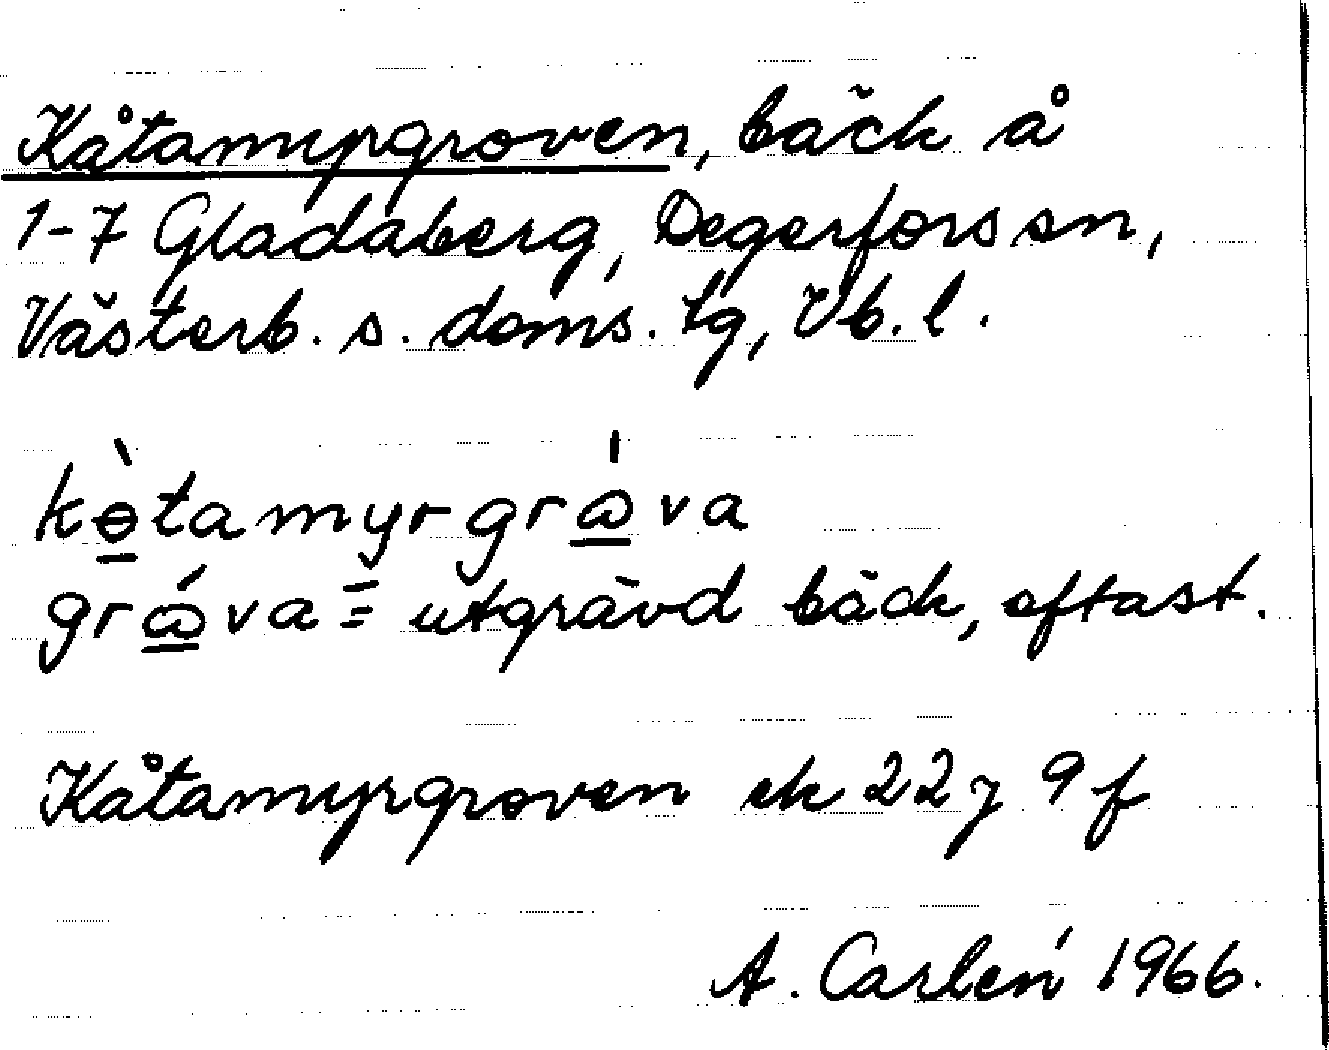 Kåtamyrgroven, bäck å
1-7 Gladaberg, Degerfors sn,
Västerb. s. doms. tg, Vb. l.
kòtamyrgrɷ́va
grɷ́va = utgrävd bäck, oftast.
Kåtamyrgroven ek 22 J 9 f
A. Carlén 1966.